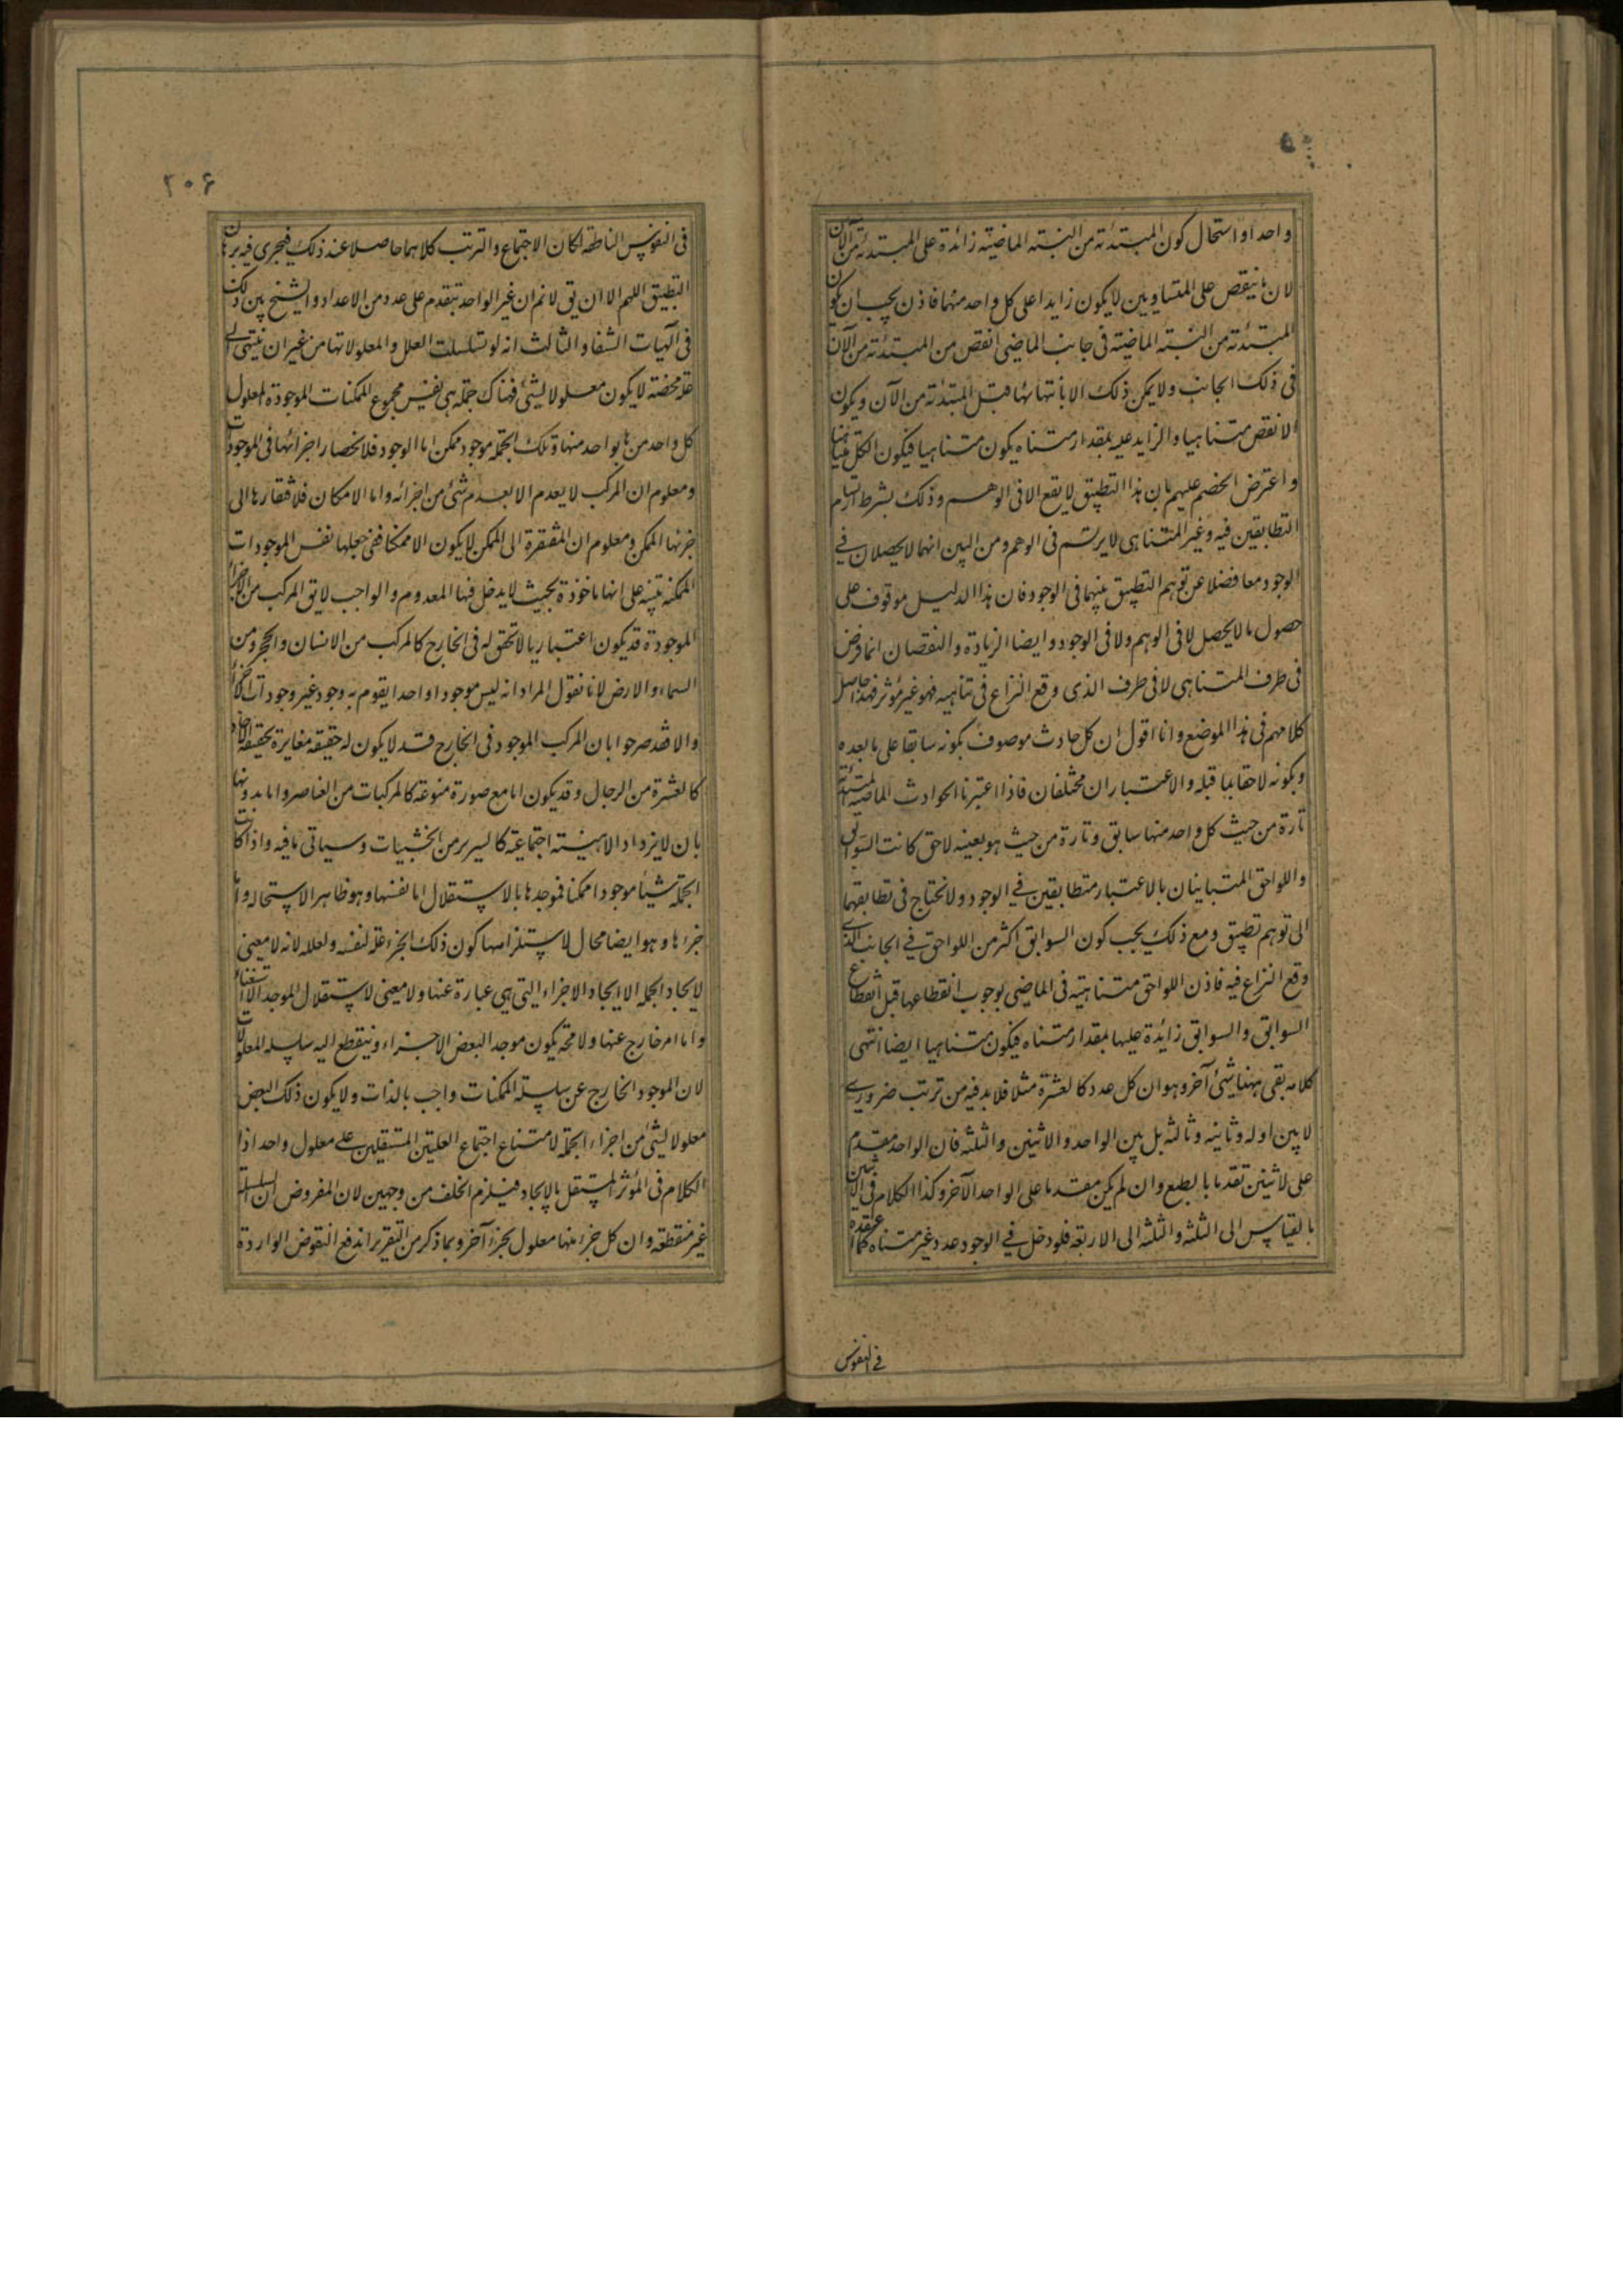 واحدا واستحال كون المبتدئة من السنة الماضية زائدة على المبتدئة من الآن
لان ما ينقص على المتساويين لا يكون زايدا على كل واحد منهما فاذن يجب ان يكون
المبتدئة من السنة الماضية فى جانب الماضى انقص من المبتدئة من الآن
فى ذلك الجانب ولا يمكن ذلك الا بانتهائها قبل المبتدئة من الآن ويكون
الانقص متناهيا والزايد عليه بمقدار متناه يكون متناهيا فيكون الكل متناهيا
واعترض الخصم عليهم بان هذا التطبيق لا يقع الا فى الوهم وذلك بشرط ارتسام
المتطابقين فيه وغير المتناهى لا يرتسم فى الوهم ومن البين انهما لا يحصلان فى
الوجود معا فضلا عن توهم التطبيق بينهما فى الوجود فان هذا الدليل موقوف على
حصول ما لا يحصل لا فى الوهم ولا فى الوجود وايضا الزيادة والنقصان انما فرض
فى طرف المتناهى لا فى طرف الذى وقع النزاع فى تناهيه فهو غير مؤثر فهذا حاصل
كلامهم فى هذا الموضع وانا اقول ان كل حادث موصوف بكونه سابقا على ما بعده
وبكونه لاحقا بما قبله والاعتباران مختلفان فاذا اعتبرنا الحوادث الماضية المبتدئة
تارة من حيث كل واحد منها سابق وتارة من حيث هو بعينه لاحق كانت السوابق
واللواحق المتباينان بالاعتبار متطابقين فى الوجود ولا نحتاج فى تطابقهما
الى توهم تطبيق ومع ذلك يجب كون السوابق اكثر من اللواحق فى الجانب الذى
وقع النزاع فيه فاذن اللواحق متناهية فى الماضى لوجوب انقطاعها قبل انقطاع
السوابق والسوابق زائدة عليها بمقدار متناه فيكون متناهيا ايضا انتهى
كلامه بقى ههنا شئ آخر وهو ان كل عدد كالعشرة مثلا فلا بد فيه من ترتب ضرورى
لا بين اوله وثانيه وثالثه بل بين الواحد والاثنين والثلثه فان الواحد مقدم
على لاثنين تقدما بالطبع وان لم يكن مقدما على الواحد الآخر وكذا الكلام فى الاثنين
بالقياس الى الثلثه والثلثه الى الاربعة فلو دخل فى الوجود عدد غير متناه كما
فى النفوس
٢٠۶
فى النفوس الناطقة لكان الاجتماع والترتب كلاهما حاصلا عند ذلك فيجرى فيه برهان
التطبيق اللهم الا ان يق لا نم ان غير الواحد يتقدم على عدد من الاعداد والشيخ بين ذلك
فى آلهيات الشفا والثالث انه لو تسلسلت العلل والمعلولاتها من غير ان ينتهى الى
علة محضة لا يكون معلولا لشئ فهناك جملة هى نفس مجموع الممكنات الموجودة المعلول
كل واحد منها بواحد منها وتلك الجملة موجود ممكن اما الوجود فلانحصار اجزائها فى الموجودات
ومعلوم ان المركب لا يعدم الا بعدم شئ من اجزائه واما الامكان فلافتقارها الى
جزئها الممكن ومعلوم ان المفتقرة الى الممكن لا يكون الا ممكنا ففى جعلها نفس الموجودات
الممكنة تنبيه على انها ماخوذة بحيث لا يدخل فيها المعدوم والواجب لا يق المركب من الاجزاء
الموجودة قد يكون اعتباريا لا تحقق له فى الخارج كالمركب من الانسان والحجر ومن
السماء والارض لانا نقول المراد انه ليس موجودا واحدا يقوم به وجود غير وجودات الاجزاء
والا فقد صرحوا بان المركب الموجود فى الخارج قد لا يكون له حقيقة مغايرة لحقيقة الآحاد
كالعشرة من الرجال وقد يكون اما مع صورة منوعة كالمركبات من العناصر واما بدونها
بان لا يزداد الا هيئة اجتماعية كالسرير من الخشبات وسياتى ما فيه واذا كانت
الجملة شيئا موجودا ممكنا فموجدها بالاستقلال اما نفسها وهو ظاهر الاستحاله واما
جزءها وهو ايضا محال لاستلزامها كون ذلك الجزء علة لنفسه ولعلله لانه لا معنى
لايجاد الجملة الا ايجاد الاجزاء التى هى عبارة عنها ولا معنى لاستقلال الموجد الا استغناء
واما امر خارج عنها ولا محة يكون موجد البعض الاجزاء وينقطع اليه سلسلة المعلولات
لان الموجود الخارج عن سلسلة الممكنات واجب بالذات ولا يكون ذلك البعض
معلولا لشئ من اجزاء الجملة لامتناع اجتماع العلتين المستقلين على معلول واحد اذا
الكلام فى المؤثر المستقل بالايجاد فيلزم الخلف من وجهين لان المفروض ان السلسلة
غير منقطعة وان كل جزء منها معلول بجزء آخر وبما ذكر من التقرير اندفع النقوض الواردة